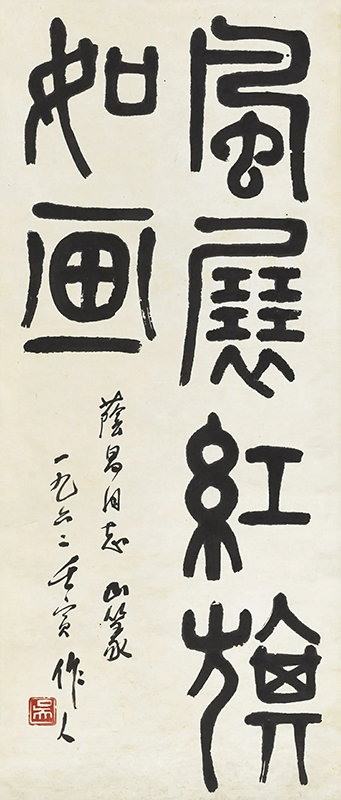 風展紅旗
如画
蔭昌同志 篆
一九六二壬寅 作人
吳